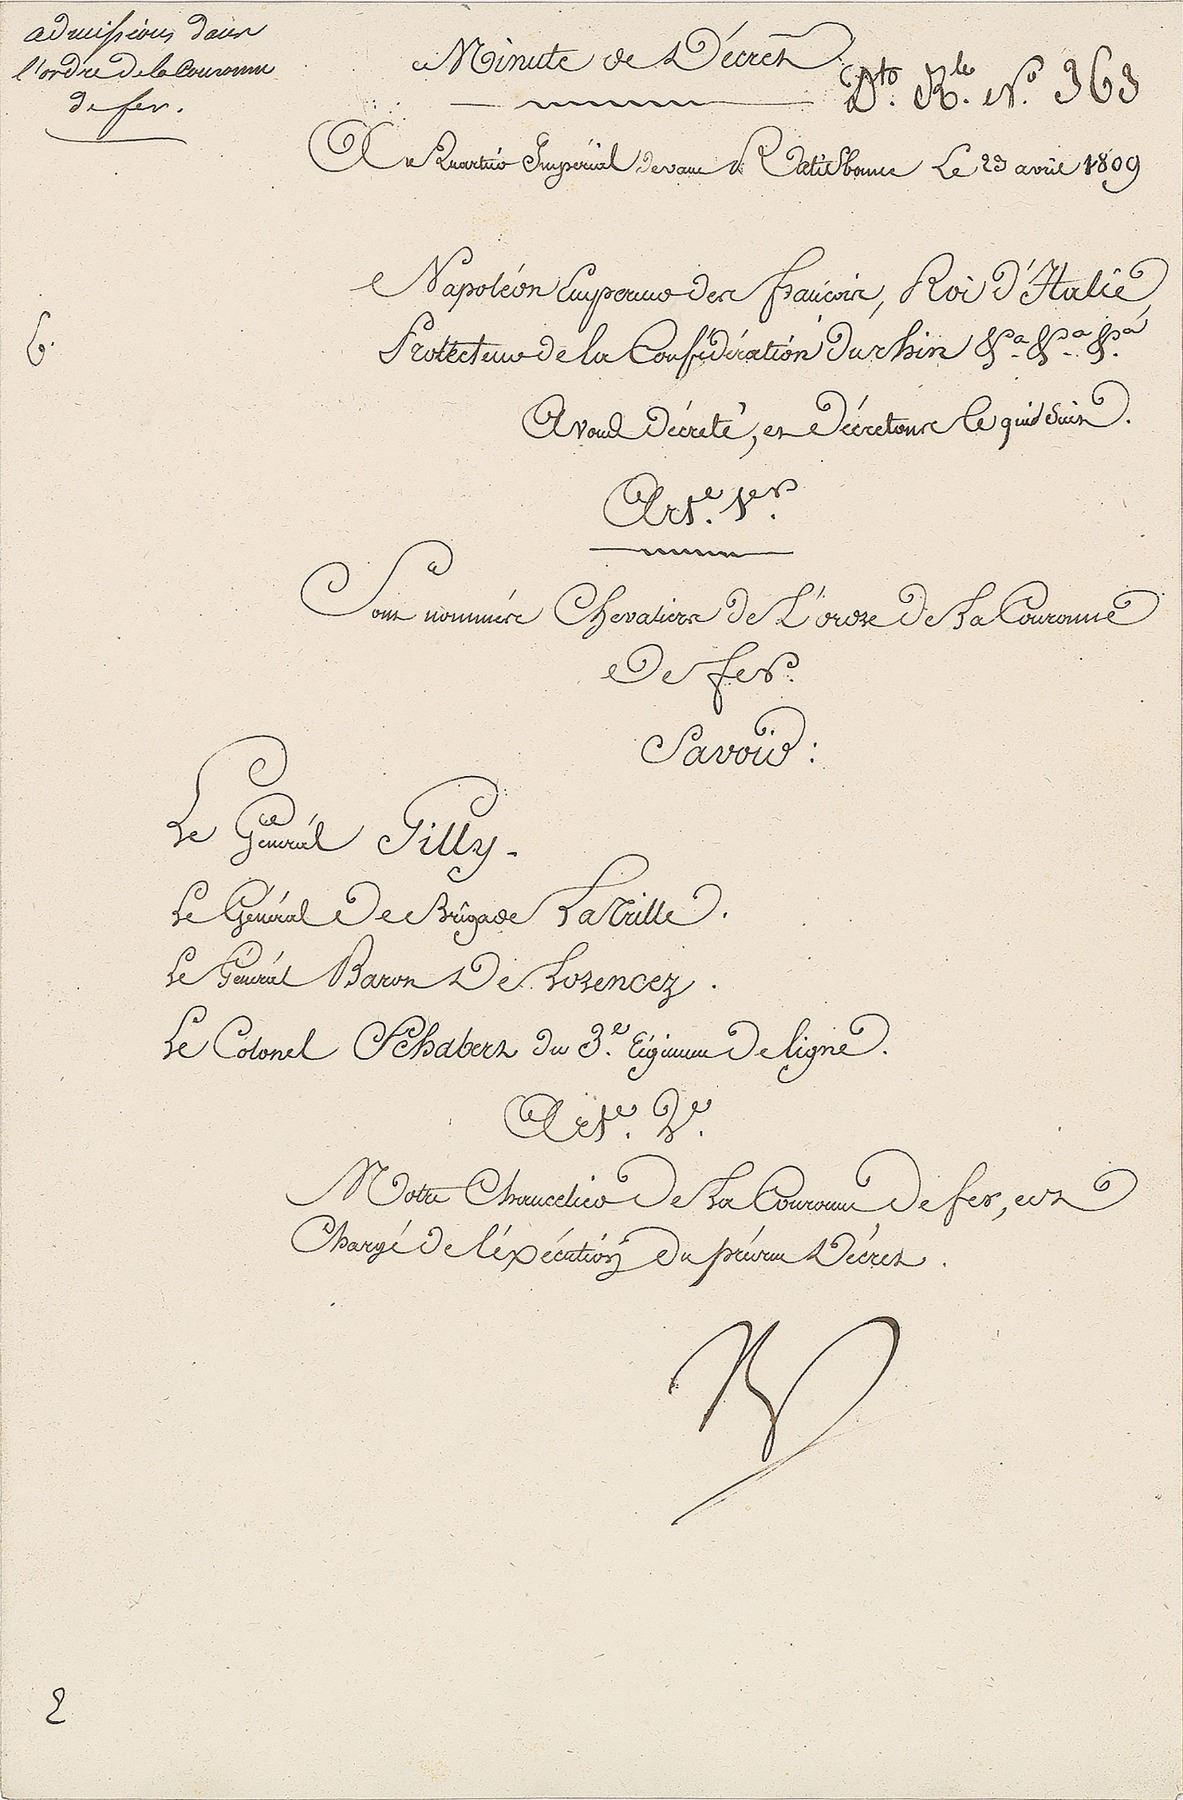 admissions dans
l'ordre de la Couronne
de fer.
Minute de Décret
D.to R.le N.o 363
Au Quartier Impérial devant Ratisbonne Le 23 avril 1809
Napoléon Empereur des français, Roi d'Italie,
6.
Protecteur de la Confédération du rhin &.a &.a &.a
Avons Décrété, et Décretons ce qui Suit.
Art.e 1.er
Sont nommés Chevaliers de L'ordre De La Couronne
De fer.
Savoir:
Le Général Gilly.
Le Général De Brigade LaTrille.
Le Général Baron De Lorencez.
Le Colonel Schobert du 3.e régiment De ligne.
Art.e 2.e
Notre Chancelier De La Couronne De fer, est
Chargé de l'éxécution du présent Décret.
2